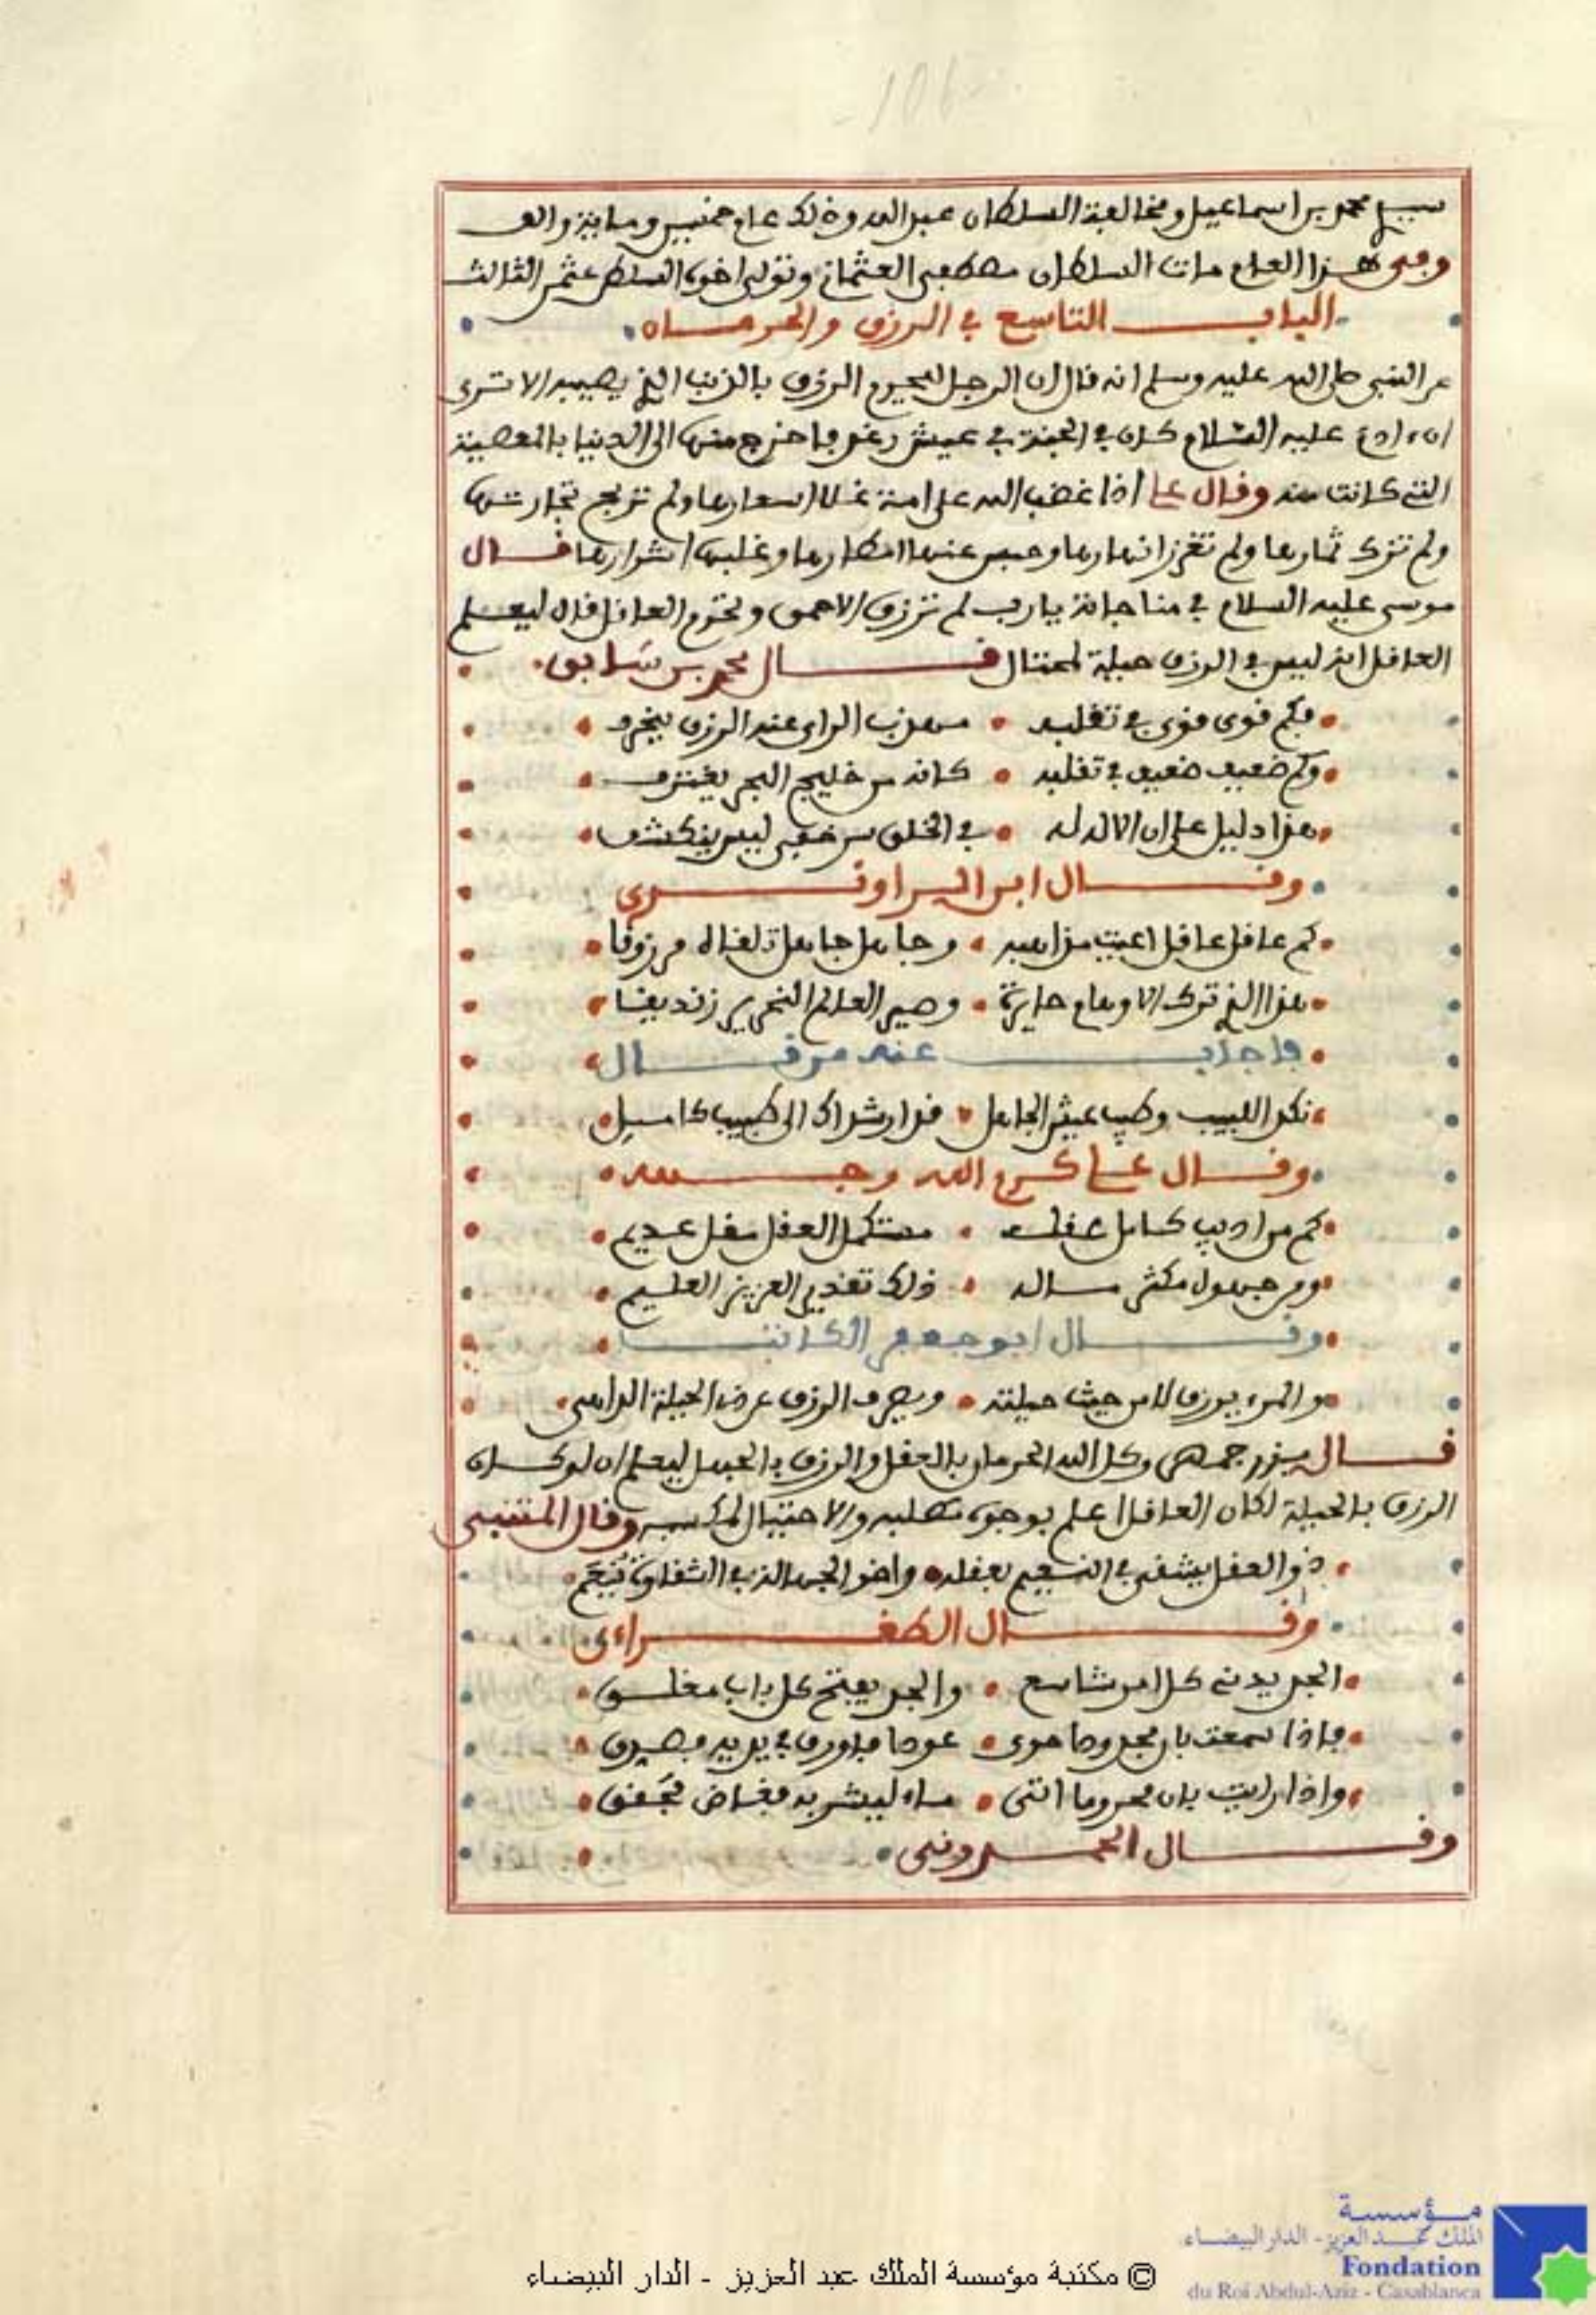 106
سبيل محمد بن اسماعيل ومخالفة السلطان عبد الله وذلك عام خمسين وماية والف
وفى هذا العام مات السلطان مصطفى العثمانى وتولى اخوه السلطن عثمن الثالث
الباب التاسع في الرزق والحرمان
عن النبى صلى الله عليه وسلم انه قال ان الرجل ليحرم الرزق بالذنب الذي يصيبه الا ترى
ان ءادم عليه السلام كان في الجنة في عيش رغد فاخرج منها الى الدنيا بالمعصية
التى كانت منه وقال على اذا غضب الله على امة غلا اسعارها ولم تربح تجارتها
ولم تزك ثمارها ولم تغزر انهارها وحبس عنها امطارها وغلبها اشرارها قال
موسى عليه السلام في مناجاته يا رب لم ترزق الاحمق وتحرم العاقل قال ليعلم
العاقل انه ليس في الرزق حيلة لمحتال قال محمد بن سابق
فكم قوى قوى في تقلبه مهذب الراى عنه الرزق ينحرف
وكم ضعيف ضعيف في تقلبه كانه من خليج البحر يغترف
هذا دليل على ان الاله له في الخلق سر خفى ليس ينكشف
وقال ابن الراوندى
كم عاقل عاقل اعيت مذاهبه وجاهل جاهل تلقاه مرزوقا
هذا الذي ترك الاوهام حايرة وصير العالم النحرير زنديقا
فاجاب عنه من قال
نكد اللبيب وطيب عيش الجاهل قد ارشداك الى طبيب كامل
وقال على كرم الله وجهه
كم من اديب كامل عقله مستكمل العقل مقل عديم
ومن جهول مكثر ماله ذلك تقدير العزيز العليم
وقال ابو جعفر الكاتب
والمرء يرزق لا من حيث حيلته ويصرف الرزق عن ذى الحيلة الداهى
قال بزرجمهر وكل الله الحرمان بالعقل والرزق بالجهل ليعلم ان لو كان
الرزق بالحيلة لكان العاقل اعلم بوجوه مطلبه والاحتيال لمكسبه وقال المتنبى
ذو العقل يشقى في النعيم بعقله واخو الجهالة في الشقاوة ينعم
وقال الطغراءى
الجد يدنى كل امر شاسع والجد يفتح كل باب مغلق
فاذا سمعت بان مجدودا حوى عودا فاورق في يديه فصدق
واذا رايت بان محروما اتى ماء ليشربه فغاض فحقق
وقال الحمدونى
مؤسسة
الملك عبد العزيز - الدار البيضاء
Fondation
du Roi Abdul-Aziz - Casablanca
© مكتبة مؤسسة الملك عبد العزيز - الدار البيضاء